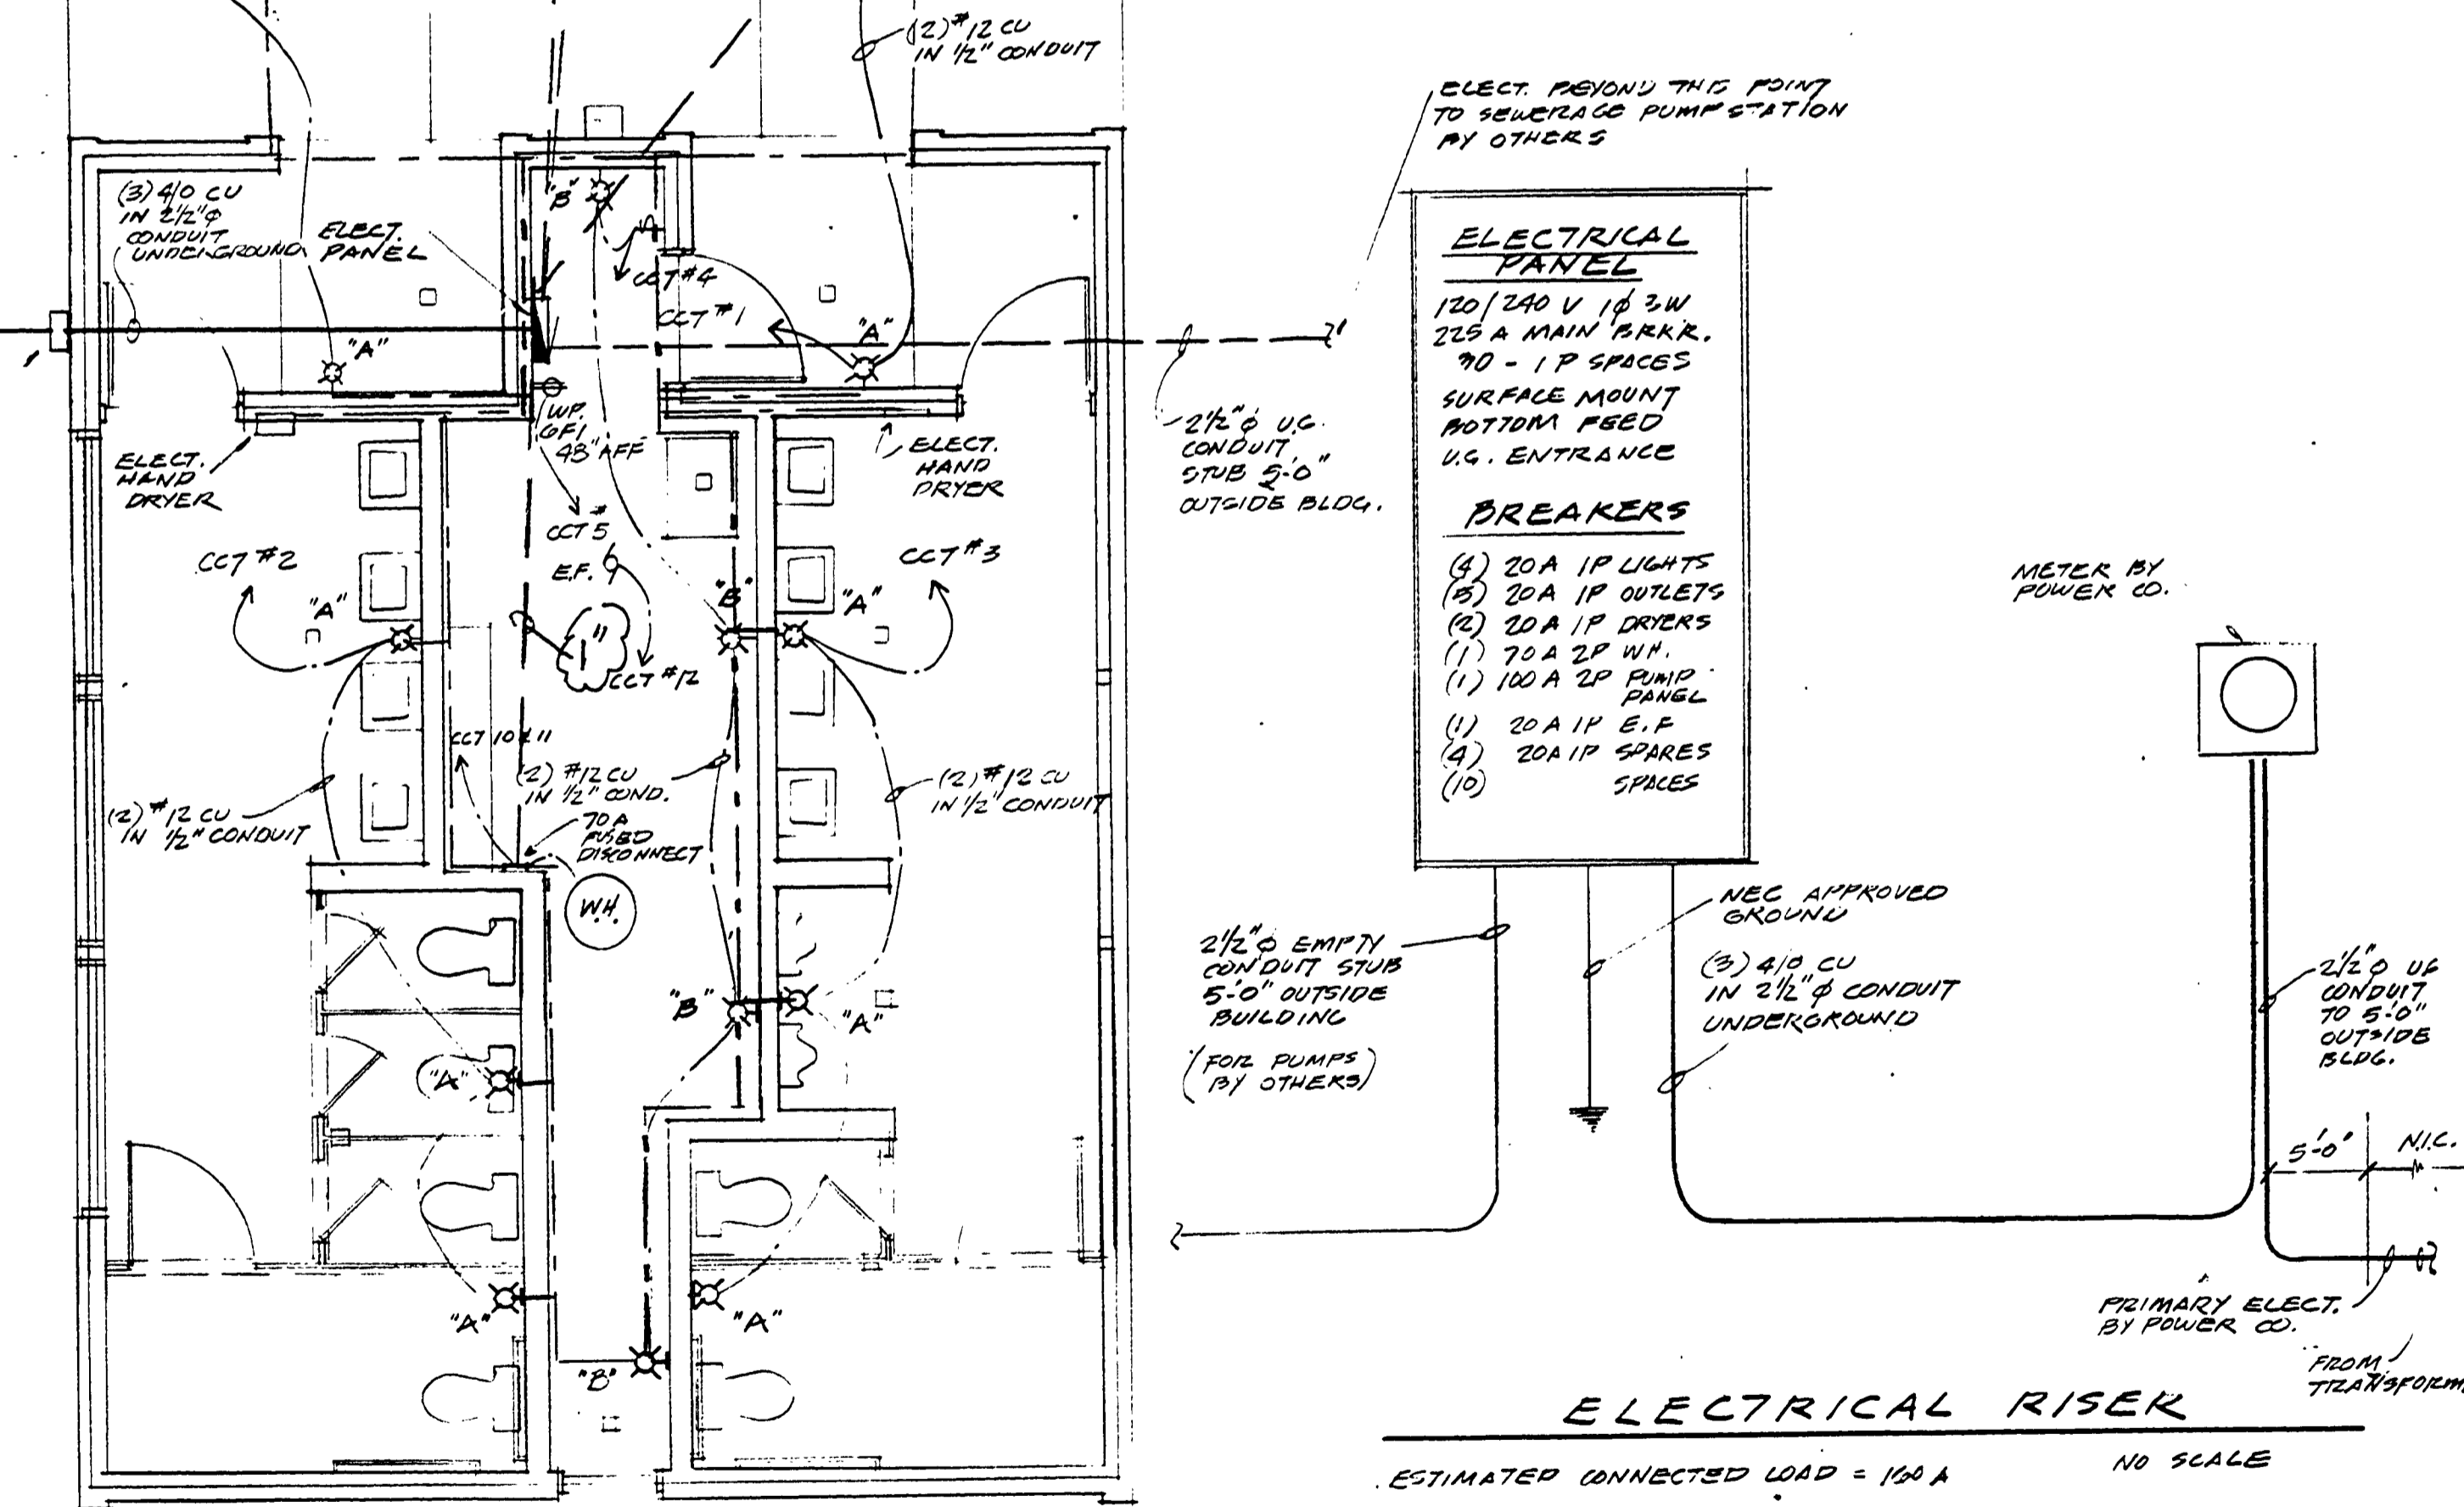 (2) #12 CU
IN 1/2" CONDUIT
(3) 4/0 CU
IN 2 1/2" φ
CONDUIT
UNDERGROUND
ELECT.
PANEL
"B"
CCT #4
CCT #1
"A"
"A"
WP.
GFI
48" AFF
CCT #5
ELECT.
HAND
DRYER
ELECT.
HAND
DRYER
CCT #2
"A"
E.F.
"B"
"A"
CCT #3
1"
CCT #12
CCT 10 & 11
(2) #12 CU
IN 1/2" COND.
70 A
FUSED
DISCONNECT
(2) #12 CU
IN 1/2" CONDUIT
(2) #12 CU
IN 1/2" CONDUIT
W.H.
"B"
"A"
"A"
"A"
"A"
"B"
ELECT. BEYOND THIS POINT
TO SEWERAGE PUMP STATION
BY OTHERS
2 1/2" φ U.G.
CONDUIT
STUB 5'-0"
OUTSIDE BLDG.
ELECTRICAL
PANEL
120/240 V 1φ 3W
225 A MAIN BRKR.
30 - 1 P SPACES
SURFACE MOUNT
BOTTOM FEED
U.G. ENTRANCE
BREAKERS
(4) 20 A 1P LIGHTS
(5) 20A 1P OUTLETS
(2) 20 A 1P DRYERS
(1) 70 A 2P W.H.
(1) 100 A 2P PUMP
PANEL
(1) 20 A 1P E.F
(4) 20A 1P SPARES
(10) SPACES
METER BY
POWER CO.
2 1/2" φ EMPTY
CONDUIT STUB
5'-0" OUTSIDE
BUILDING
(FOR PUMPS
BY OTHERS)
NEC APPROVED
GROUND
(3) 4/0 CU
IN 2 1/2" φ CONDUIT
UNDERGROUND
2 1/2" φ UG
CONDUIT
TO 5'-0"
OUTSIDE
BLDG.
5'-0"
N.I.C.
PRIMARY ELECT.
BY POWER CO.
FROM
TRANSFORM
ELECTRICAL RISER
NO SCALE
ESTIMATED CONNECTED LOAD = 160 A